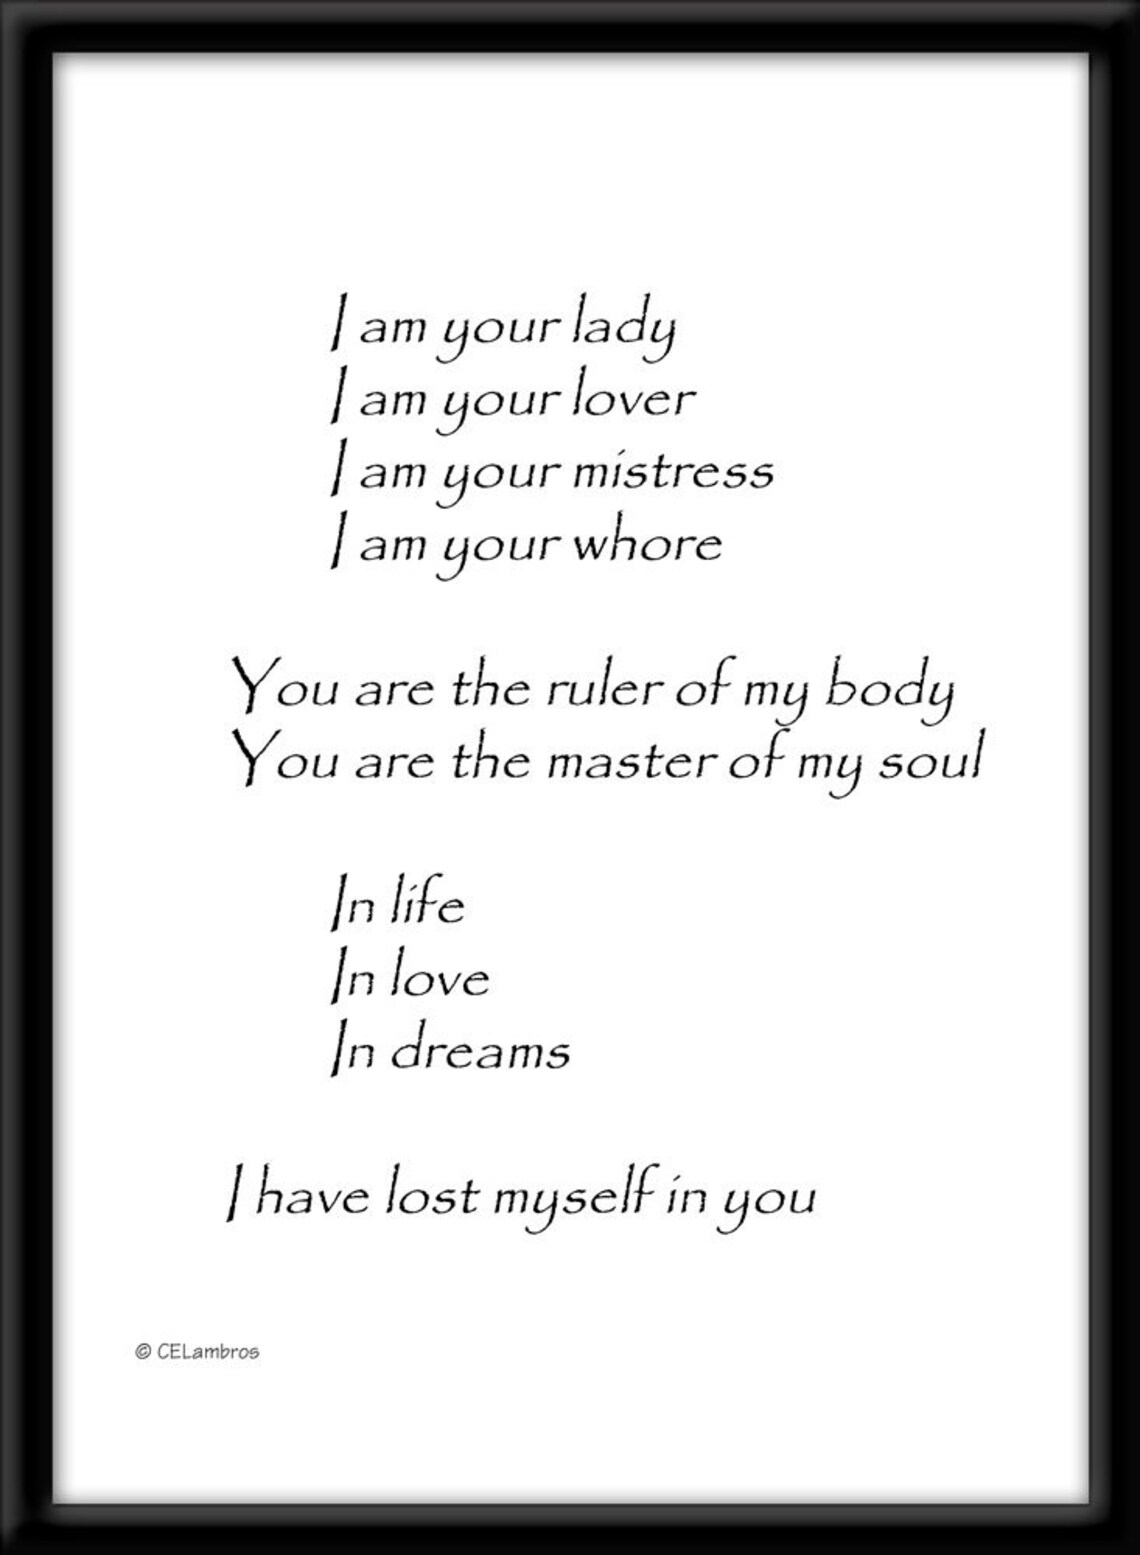 I am your lady
I am your lover
I am your mistress
I am your whore
You are the ruler of my body
You are the master of my soul
In life
In love
In dreams
I have lost myself in you
© CELambros